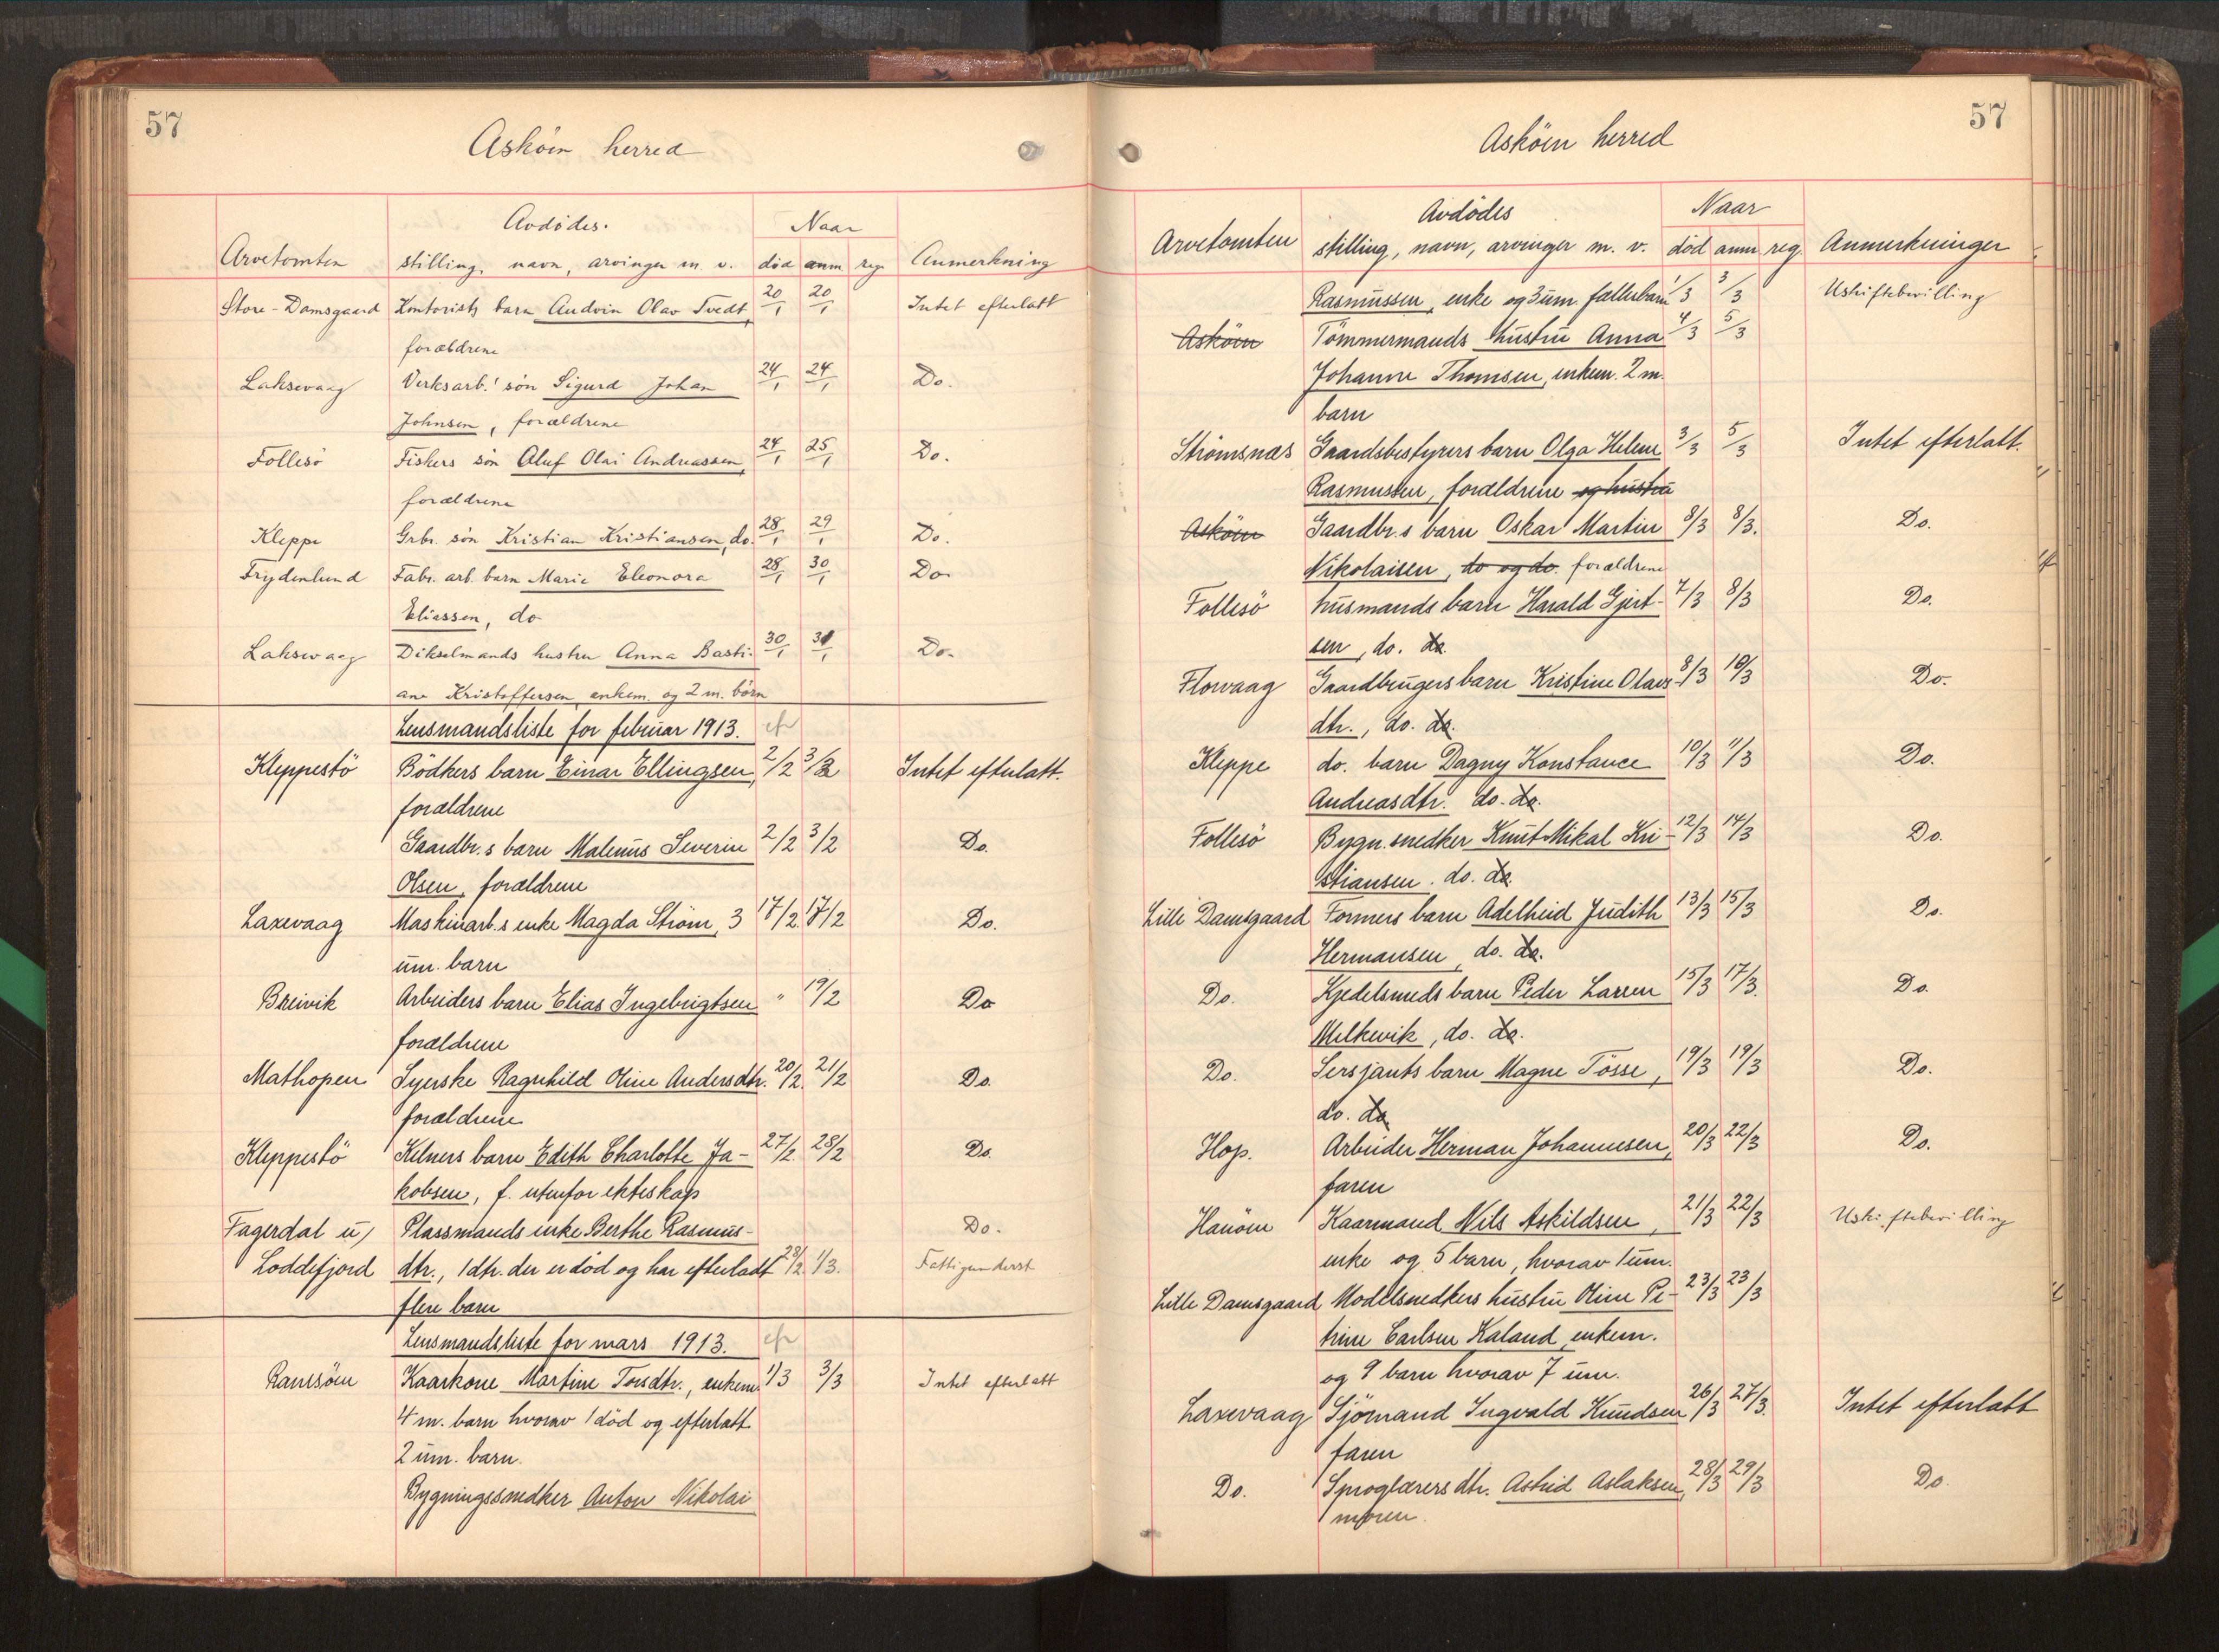 57
Asköen herred
Avdödes.
Naar
Arvetomten stilling, navn, arvinger m. v. död anm reg Anmerkning
Store-Damsgaard Kontorists barn Audvin Olav Tvedt, 20/1 20/1 Intet efterlatt
forældrene
Laksevaag Verksarb.' sön Sigurd Johan 24/1 24/1 Do.
Johnsen, forældrene
Follesö Fiskers sön Oluf Olai Andreassen, 24/1 25/1 Do.
forældrene
Kleppe Grbr. sön Kristian Kristiansen, do. 28/1 29/1 Do.
Frydenlund Fabr. arb. barn Marie Eleonora 28/1 30/1 Do.
Eliassen, do
Laksevaag Dikselmands hustru Anna Basti- 30/1 31/1 Do.
ane Kristoffersen, enkem. og 2 m. börn
Lensmandsliste for februar 1913.
Kleppestö Bödkers barn Einar Ellingsen, 2/2 3/2 Intet efterlatt.
forældrene
Gaardbr.s barn Malenus Severin 2/2 3/2 Do.
Olsen, forældrene
Laxevaag Maskinarb.s enke Magda Ström, 3 17/2. 17/2 Do.
um. barn
Breivik Arbeiders barn Elias Ingebrigtsen " 19/2 Do
forældrene
Mathopen Syerske Ragnhild Oline Andersdtr. 20/2. 21/2 Do.
forældrene
Kleppestö Kelners barn Edith Charlotte Ja- 27/2. 28/2 Do.
kobsen, f. utenfor ekteskap
Fagerdal u/ Plassmands enke Berthe Rasmus- Do.
Loddefjord dtr., 1 dtr. der er död og har efterladt 28/2 1/3. Fattigunderst
flere barn
Lensmandsliste for mars 1913.
Ramsöen Kaarkone Martine Torsdtr., enkem. 1/3 3/3 Intet efterlatt
4 m. barn hvorav 1 död og efterlatt
2 um. barn.
Bygningssnedker Anton Nikolai
57
Asköen herred
Avdödes
Naar
Arvetomten stilling, navn, arvinger m. v. död anm reg. Anmerkninger
Rasmussen, enke og 3 um. fællesbarn 1/3 3/3 Uskiftebevilling
Asköen Tömmermands hustru Anna 4/3 5/3
Johanne Thomsen, enkem. 2 m.
barn
Strömsnæs Gaardsbestyrers barn Olga Helene 3/3 5/3 Intet efterlatt.
Rasmussen, forældrene og hustru
Asköen Gaardbr.s barn Oskar Martin 8/3 8/3. Do.
Nikolaisen, do og do. forældrene
Follesö husmands barn Harald Gjert- 7/3 8/3 Do.
sen, do. do.
Flovaag Gaardbrugers barn Kristine Olavs- 8/3 10/3 Do.
dtr., do. do.
Kleppe do. barn Dagny Konstance 10/3 11/3 Do.
Andreasdtr. do. do.
Follesö Bygn.snedker Knut Mikal Kri- 12/3 14/3 Do.
stiansen. do. do.
Lille Damsgaard Formers barn Adelheid Judith 13/3 15/3 Do.
Hermansen, do. do.
Do. Kjedelsmeds barn Peder Larsen 15/3 17/3. Do.
Melkevik, do. do.
Do. Sersjants barn Magne Tösse, 19/3 19/3 Do.
do. do
Hop. Arbeider Herman Johannesen, 20/3 22/3 Do.
faren
Hanöen Kaarmand Nils Askildsen, 21/3 22/3 Uskiftebevilling
enke og 5 barn, hvorav 1 um.
Lille Damsgaard Modelsnedkers hustru Oline Pe- 23/3 23/3
trine Carlsen Kaland, enkem.
og 9 barn hvorav 7 um.
Laxevaag Sjömand Ingvald Knudsen 26/3 27/3. Intet efterlatt
faren
Do. Sproglærers dtr. Astrid Aslaksen, 28/3 29/3 Do.
moren.